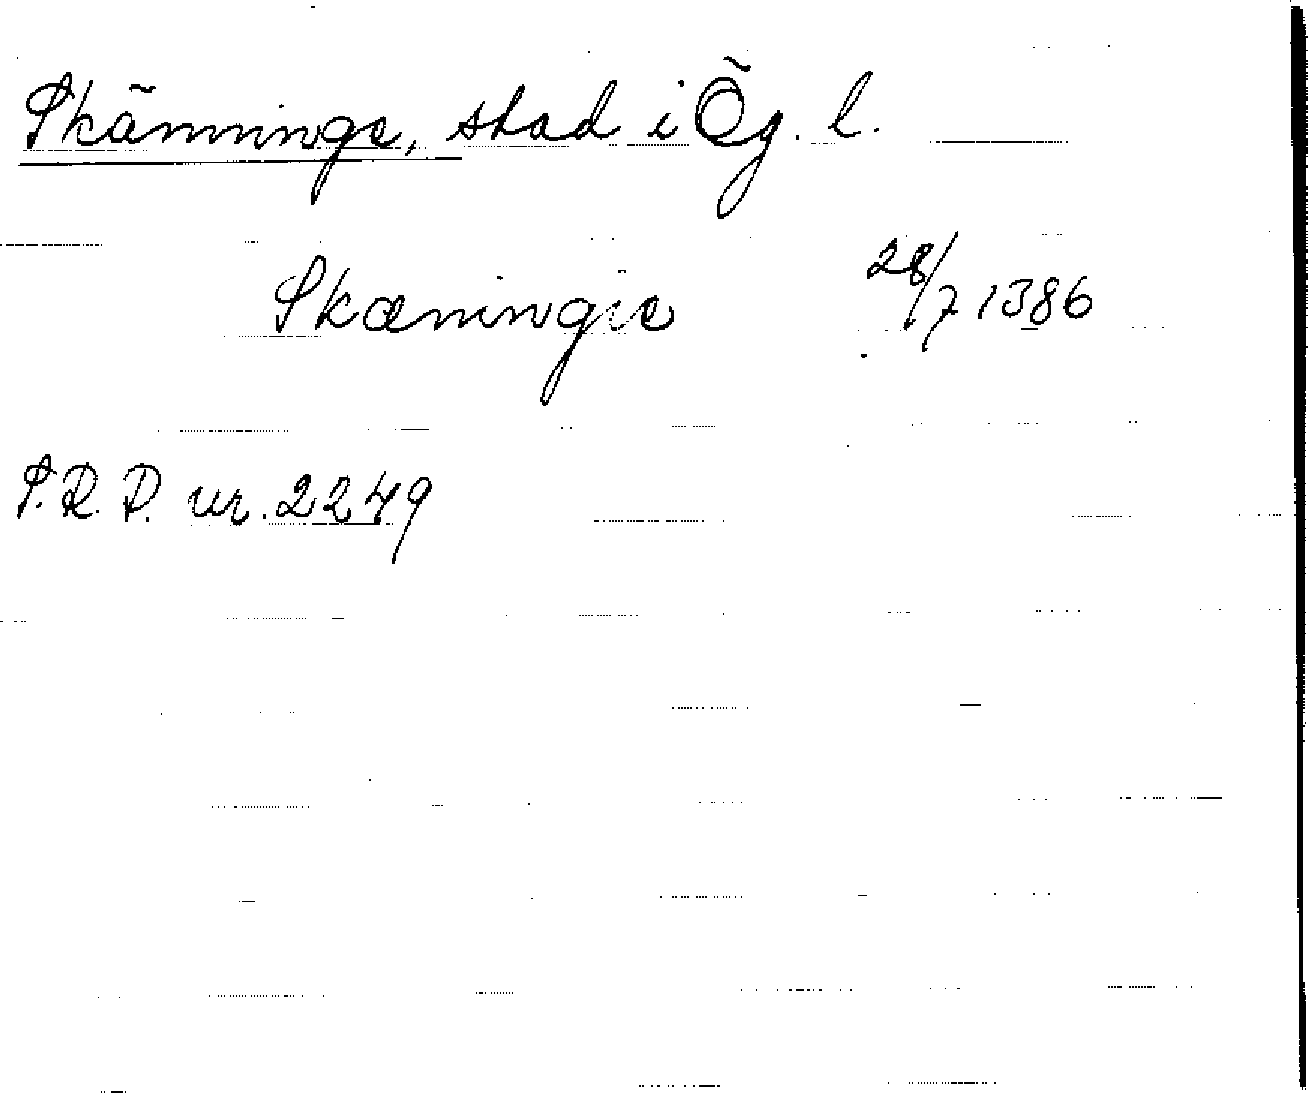 Skänninge, stad i Ög. l.
Skæningie 28/7 1386
S.R.P. nr. 2249